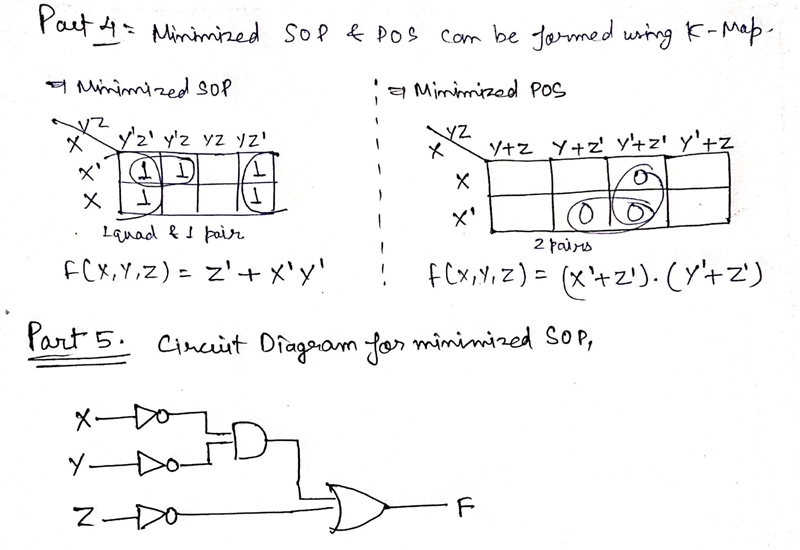 Part 4 = Minimized SOP & POS can be formed using K-Map.
⇒ Minimized SOP
X YZ Y'Z' Y'Z YZ YZ'
X' 1 1 1
X 1 1
1 quad & 1 pair
F(X,Y,Z) = Z' + X'Y'
⇒ Minimized POS
X YZ Y+Z Y+Z' Y'+Z' Y'+Z
X 0
X' 0 0
2 pairs
F(X,Y,Z) = (X'+Z').(Y'+Z')
Part 5. Circuit Diagram for minimized SOP,
X
Y
Z
F